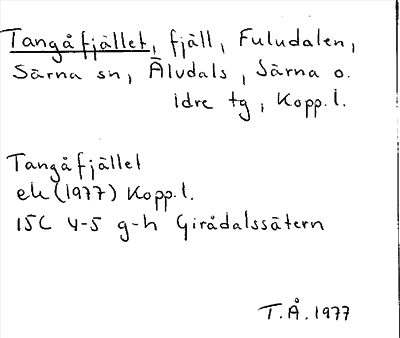 Tangåfjället, fjäll, Fuludalen,
Särna sn, Älvdals, Särna o.
idre tg, Kopp.l.
Tangåfjället
ek (1977) Kopp.l.
15C 4-5 g-h Girådalssätern
T.Å. 1977